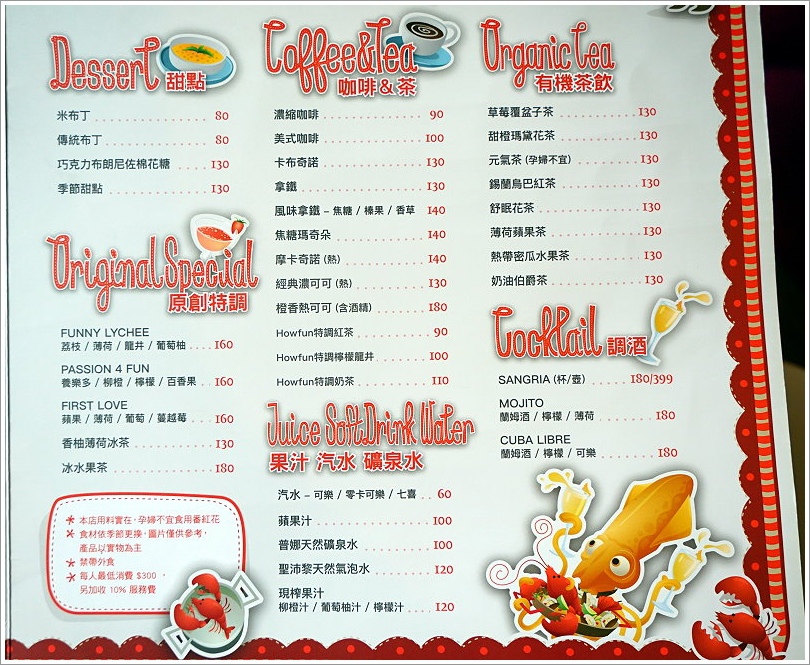 Dessert 甜點
米布丁 ........ 80
傳統布丁 ........ 80
巧克力布朗尼佐棉花糖 ...... 130
季節甜點 ........ 130
Original Special
原創特調
FUNNY LYCHEE
荔枝 / 薄荷 / 龍井 / 葡萄柚 .... 160
PASSION 4 FUN
養樂多 / 柳橙 / 檸檬 / 百香果 .. 160
FIRST LOVE
蘋果 / 薄荷 / 葡萄 / 蔓越莓 .... 160
香柚薄荷冰茶 ........ 130
冰水果茶 ........ 180
* 本店用料實在，孕婦不宜食用番紅花
* 食材依季節更換，圖片僅供參考，
產品以實物為主
* 禁帶外食
* 每人最低消費 $300 ，
另加收 10% 服務費
Coffee&Tea
咖啡&茶
濃縮咖啡 ........ 90
美式咖啡 ........ 100
卡布奇諾 ........ 130
拿鐵 ........ 130
風味拿鐵 – 焦糖 / 榛果 / 香草 140
焦糖瑪奇朵 ........ 140
摩卡奇諾 (熱) ........ 140
經典濃可可 (熱) ........ 130
橙香熱可可 (含酒精) ...... 180
Howfun特調紅茶 ........ 90
Howfun特調檸檬龍井 ...... 100
Howfun特調奶茶 ........ 110
Juice Soft Drink Water
果汁 汽水 礦泉水
汽水 – 可樂 / 零卡可樂 / 七喜 .. 60
蘋果汁 ........ 100
普娜天然礦泉水 ........ 100
聖沛黎天然氣泡水 ...... 120
現榨果汁
柳橙汁 / 葡萄柚汁 / 檸檬汁 .... 120
Organic Tea
有機茶飲
草莓覆盆子茶 ........ 130
甜橙瑪黛花茶 ........ 130
元氣茶 (孕婦不宜) ...... 130
錫蘭烏巴紅茶 ........ 130
舒眠花茶 ........ 130
薄荷蘋果茶 ........ 130
熱帶密瓜水果茶 ...... 130
奶油伯爵茶 ........ 130
Cocktail 調酒
SANGRIA (杯/壺) ..... 180/399
MOJITO
蘭姆酒 / 檸檬 / 薄荷 ...... 180
CUBA LIBRE
蘭姆酒 / 檸檬 / 可樂 ...... 180